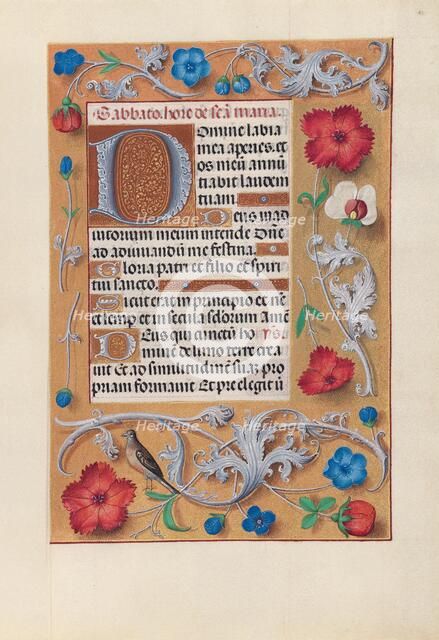 Sabbato. hore de scā maria.
Domine labia
mea aperies. et
os meū annū
tiabit laudem
tuam.
Deus in ad
iutorium meum intende Dn̄e
ad adiuuandū me festina.
Gloria patri et filio et spiritu
tui sancto.
Sicut erat in principio et nc̄
et semp et in secula sclorum Amē
Deus qui cunctū ho
mine de limo terre crea
uit Et ad similitudinē suā z pro
priam formauit Et preelegit ū
Heritage
Images